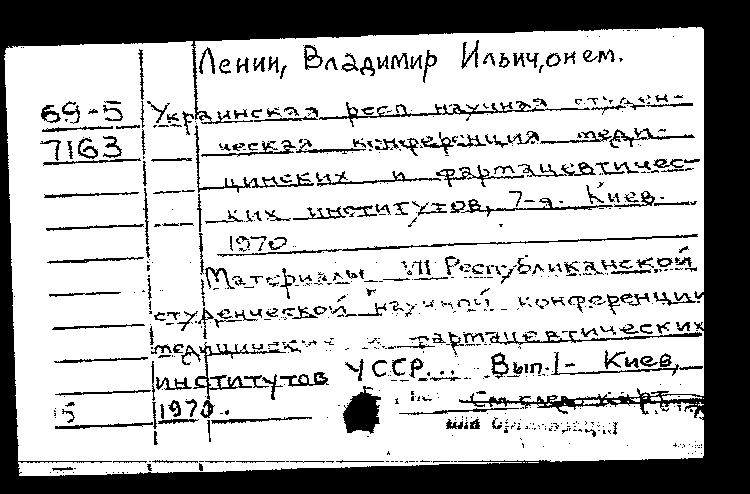 Ленин, Владимир Ильич, о нем.
69-5 Украинская респ научная студен-
7163 ческая конференция меди-
цинских и фармацевтичес-
ких институтов, 7-я. Киев.
1970.
Материалы VII Республиканской
студенческой научной конференции
медицинских и фармацевтических
институтов УССР... Вып. 1- Киев,
15 1970. См след. карт
или организация